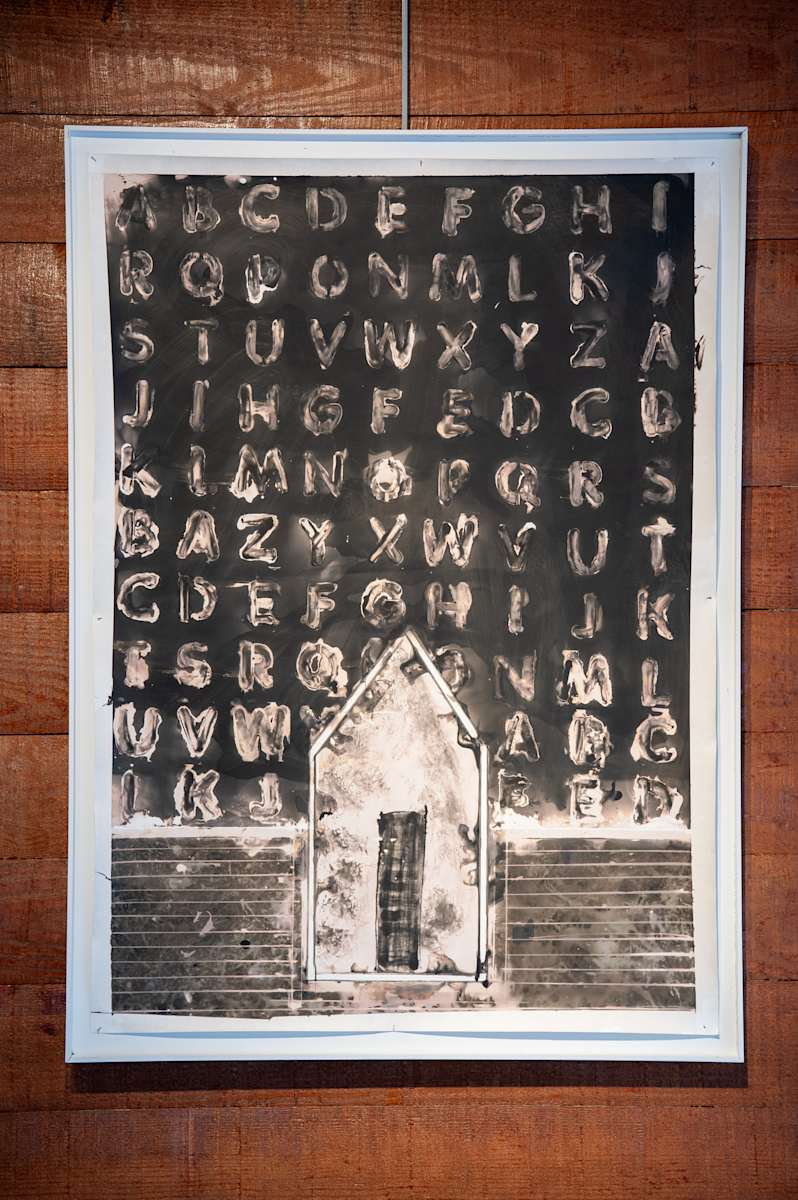 A B C D E F G H I
R Q P O N M L K J
S T U V W X Y Z A
J I H G F E D C B
K L M N O P Q R S
B A Z Y X W V U T
C D E F G H I J K
T S R Q O N M L
U V W A B C
L K J F E D